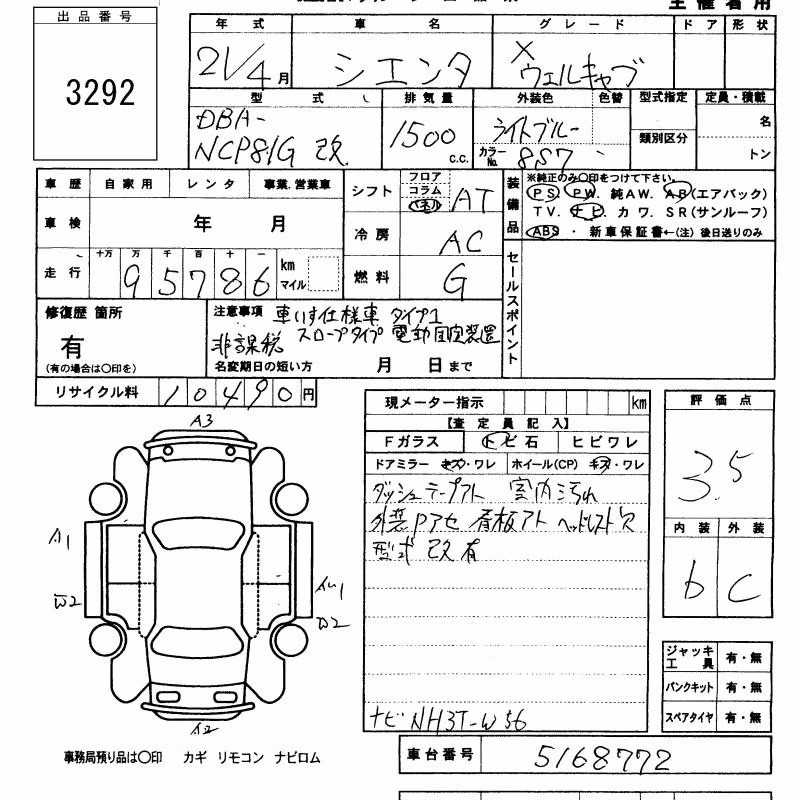 出品番号
3292
年式 車名 グレード ドア 形状
21/4月 シエンタ X ウェルキャブ
型式 排気量 外装色 色替 型式指定 定員・積載
DBA-
NCP81G 改 1500 c.c. ライトブルー
カラーNo. 8S7
類別区分
名
トン
車歴 自家用 レンタ 事業.営業車
シフト フロア コラム パネル AT
車検 年 月
冷房 AC
走行 十万 万 千 百 十 一
95786 km マイル
燃料 G
装備品
※純正のみ〇印をつけて下さい。
PS. PW. 純AW. AB(エアバック)
TV. ナビ カワ. SR(サンルーフ)
ABS ・ 新車保証書←(注) 後日送りのみ
セールスポイント
修復歴 箇所
有
(有の場合は〇印を)
注意事項 車いす仕様車 タイプ1
スロープタイプ 電動固定装置
非課税
名変期日の短い方 月 日まで
リサイクル料 10490円
現メーター指示 km
【査定員記入】
Fガラス トビ石 ヒビワレ
ドアミラー キズ・ワレ ホイール(CP) キズ・ワレ
ダッシュテープアト 室内汚れ
外装Pアセ 看板アト ヘッドレスト欠
型式 改 有
ナビ NH3T-W56
評価点
3.5
内装 外装
b C
ジャッキ工具 有・無
パンクキット 有・無
スペアタイヤ 有・無
A3
A1
A2
事務局預り品は〇印 カギ リモコン ナビロム
車台番号 5168772